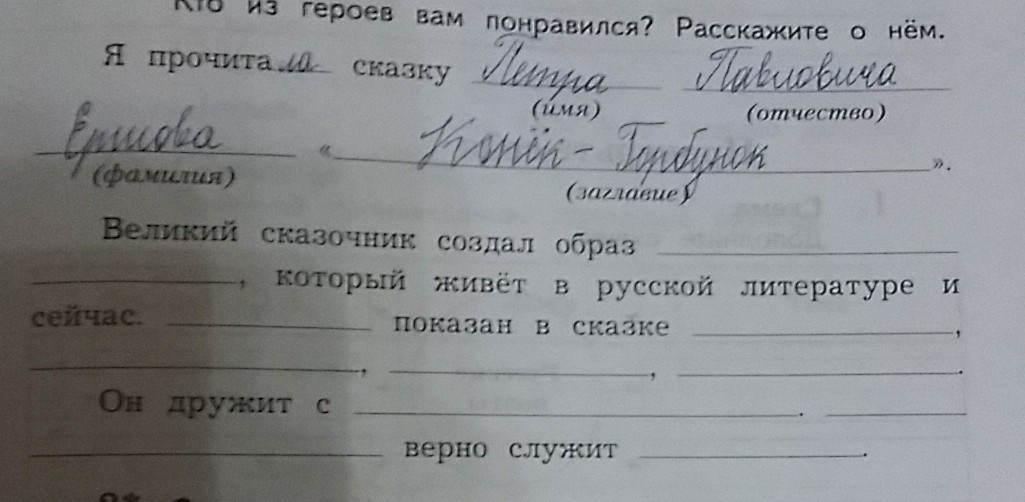 Кто из героев вам понравился? Расскажите о нём.
Я прочитала сказку Петра Павловича
(имя) (отчество)
Ершова « Конёк-Горбунок ».
(фамилия) (заглавие)
Великий сказочник создал образ
, который живёт в русской литературе и
сейчас. показан в сказке ,
, , .
Он дружит с .
верно служит .